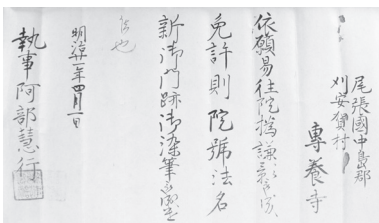 尾張國中島郡
刈安賀村
專養寺
依願易往院
免許則院號法名
新御門跡御染筆
也
明治十一年四月一日
執事阿部慧行